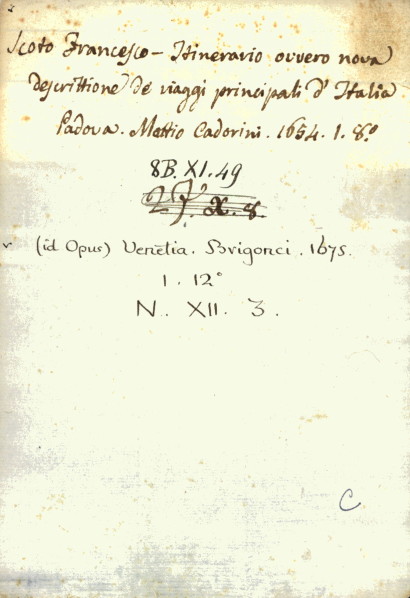 Scoto Francesco - Itinerario ovvero nova
descrittione de' viaggi principali d' Italia
Padova. Mattio Cadorini. 1654. 1. 8.º
8B. XI. 49
27. X. 8
v (id Opus) Venetia. Brigonci. 1675.
1. 12º
N. XII. 3.
C